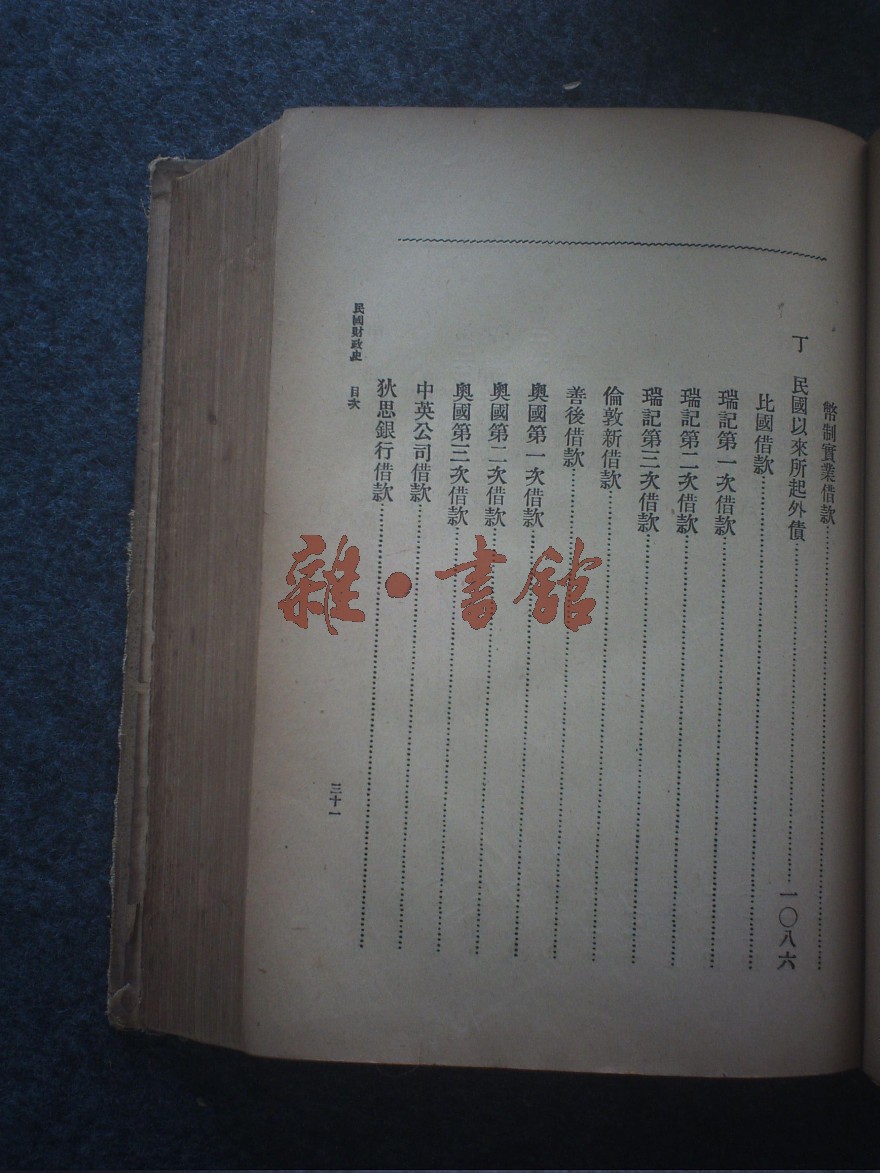 幣制實業借款
丁 民國以來所起外債 一〇八六
比國借款
瑞記第一次借款
瑞記第二次借款
瑞記第三次借款
倫敦新借款
善後借款
奧國第一次借款
奧國第二次借款
奧國第三次借款
中英公司借款
狄思銀行借款
民國財政史 目次 三十一
雜·書館